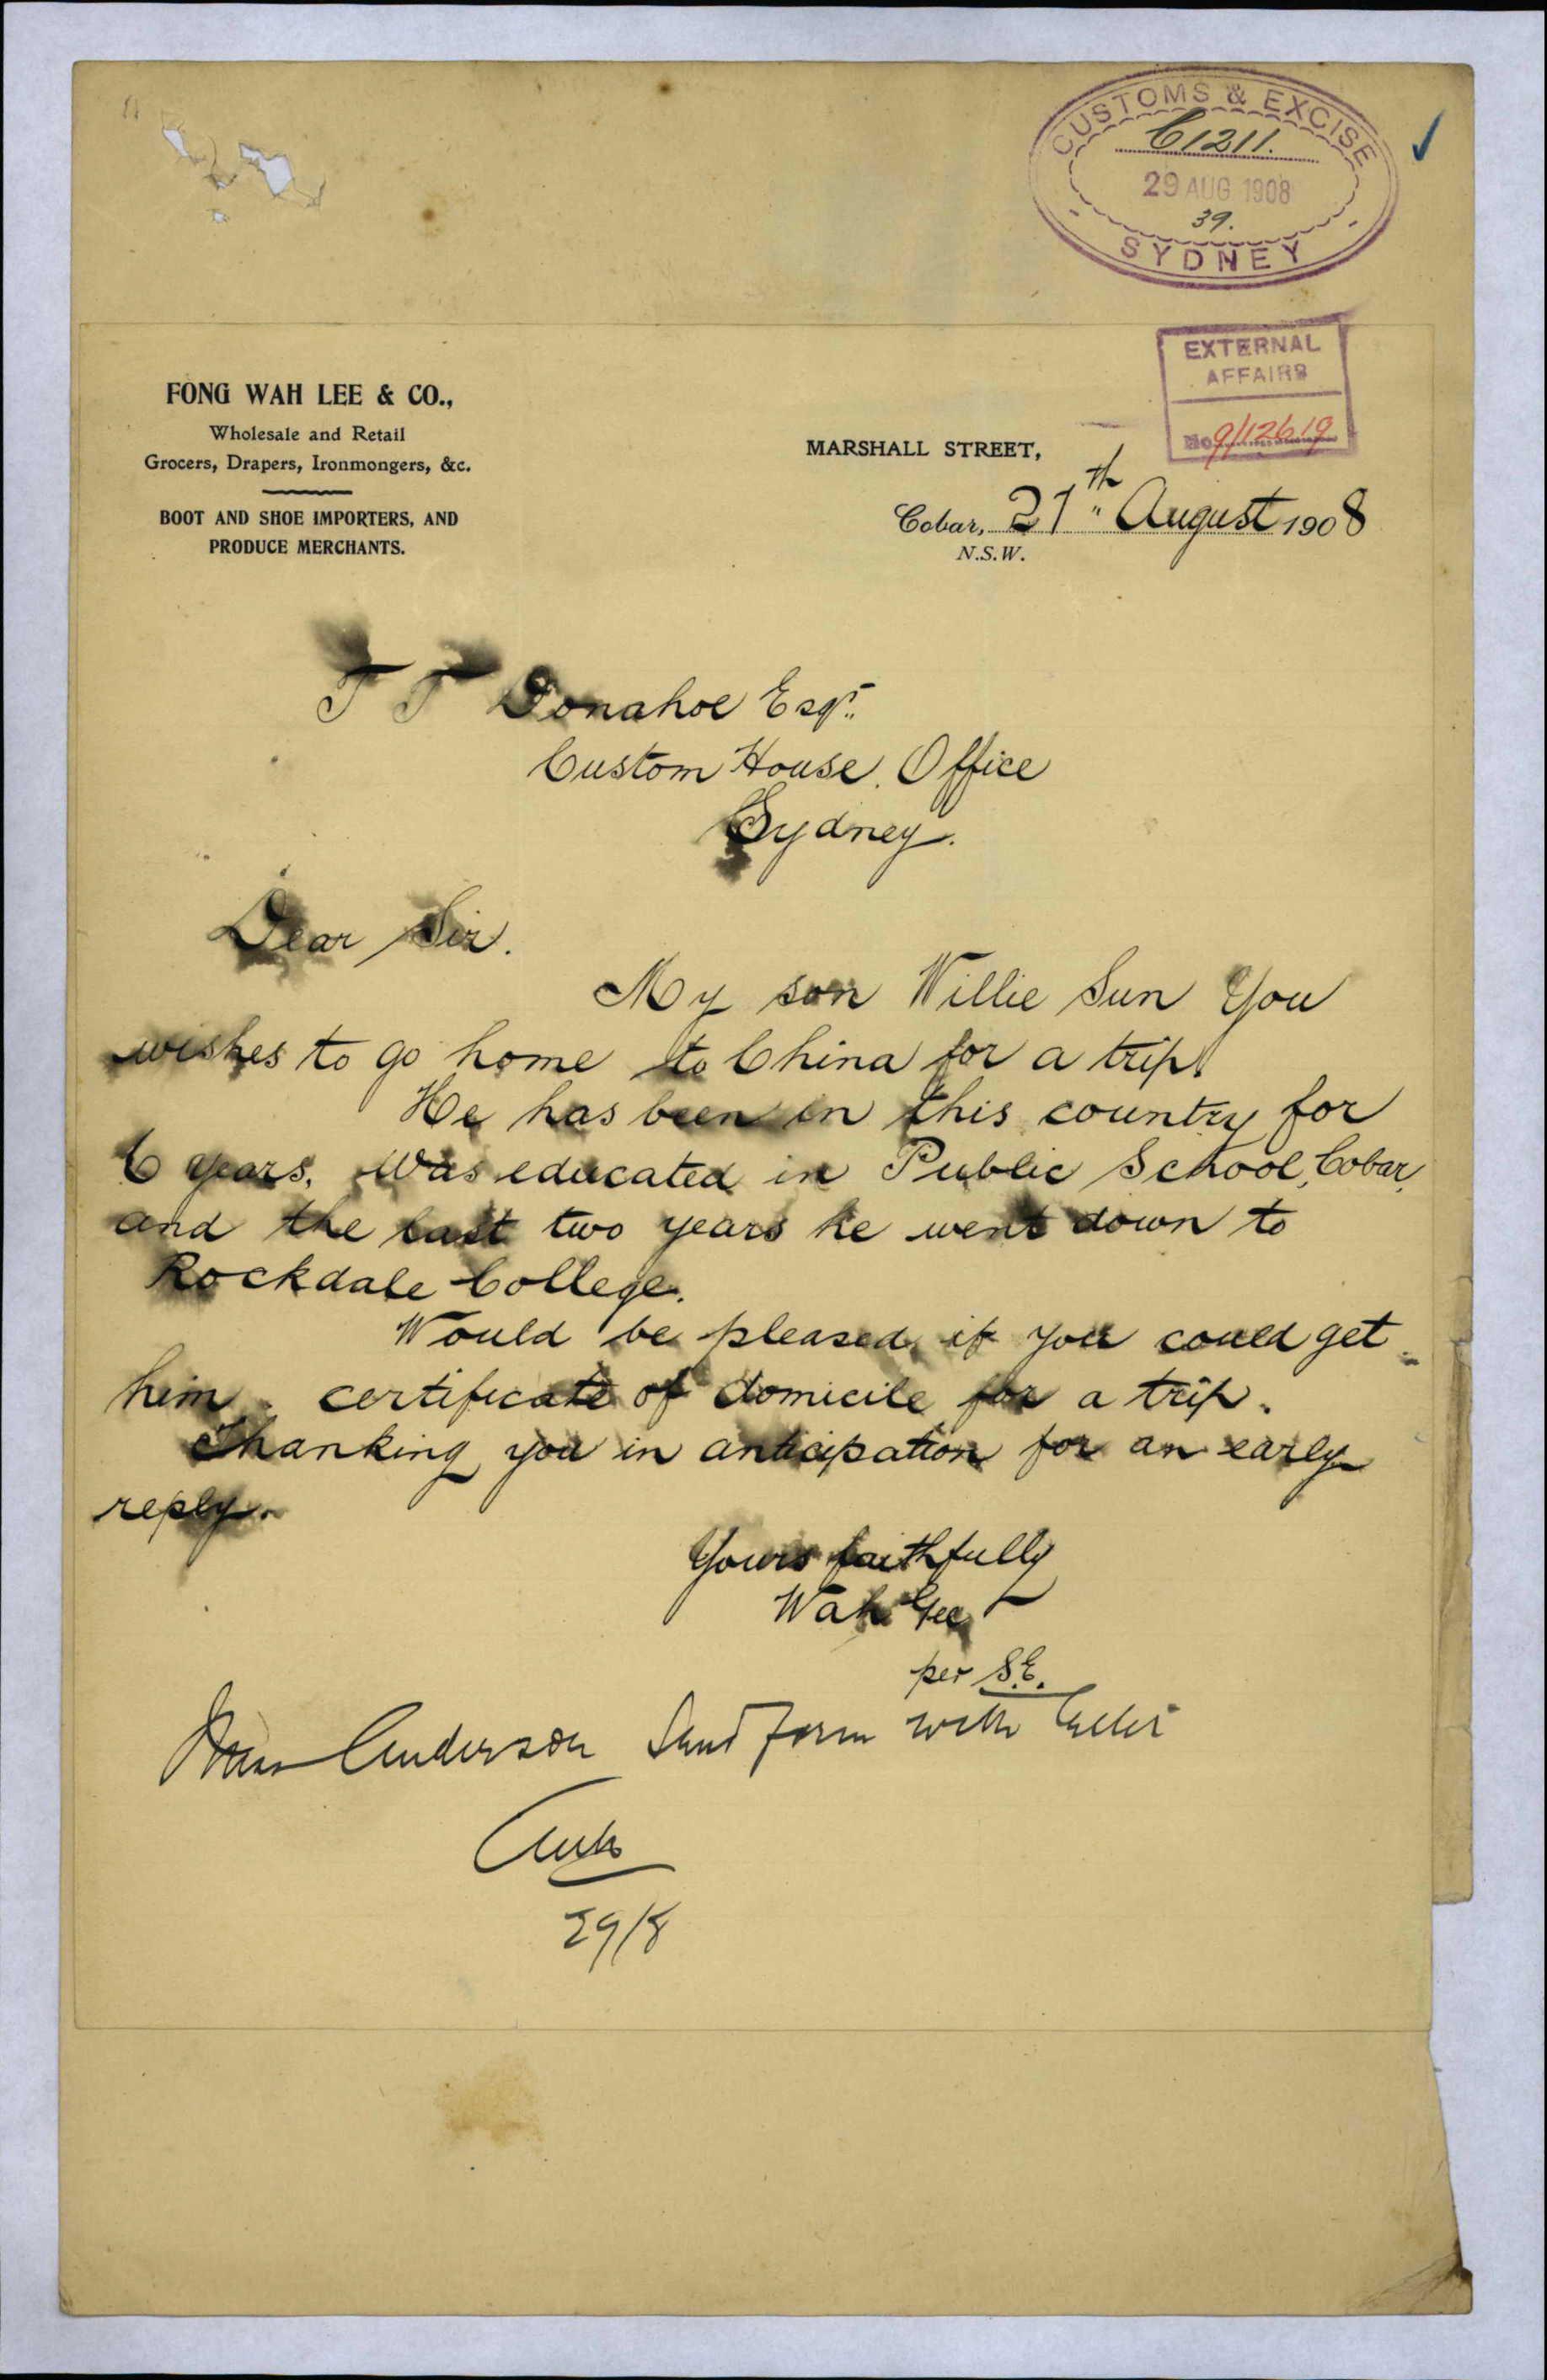 CUSTOMS & EXCISE
C1211.
29 AUG 1908
39.
SYDNEY
EXTERNAL
AFFAIRS
No 9/12619
FONG WAH LEE & CO.,
Wholesale and Retail
Grocers, Drapers, Ironmongers, &c.
BOOT AND SHOE IMPORTERS, AND
PRODUCE MERCHANTS.
MARSHALL STREET,
Cobar, 27th August 1908
N.S.W.
T T Donahoe Esqr.
Custom House. Office
Sydney.
Dear Sir.
My son Willie Sun You
wishes to go home to China for a trip.
He has been in this country for
6 years. Was educated in Public School, Cobar,
and the last two years he went down to
Rockdale College.
Would be pleased if you could get
him certificate of domicile for a trip.
Thanking you in anticipation for an early
reply.
Yours faithfully
Wah Gee
per S.E.
Anderson Send form with letter
29/8